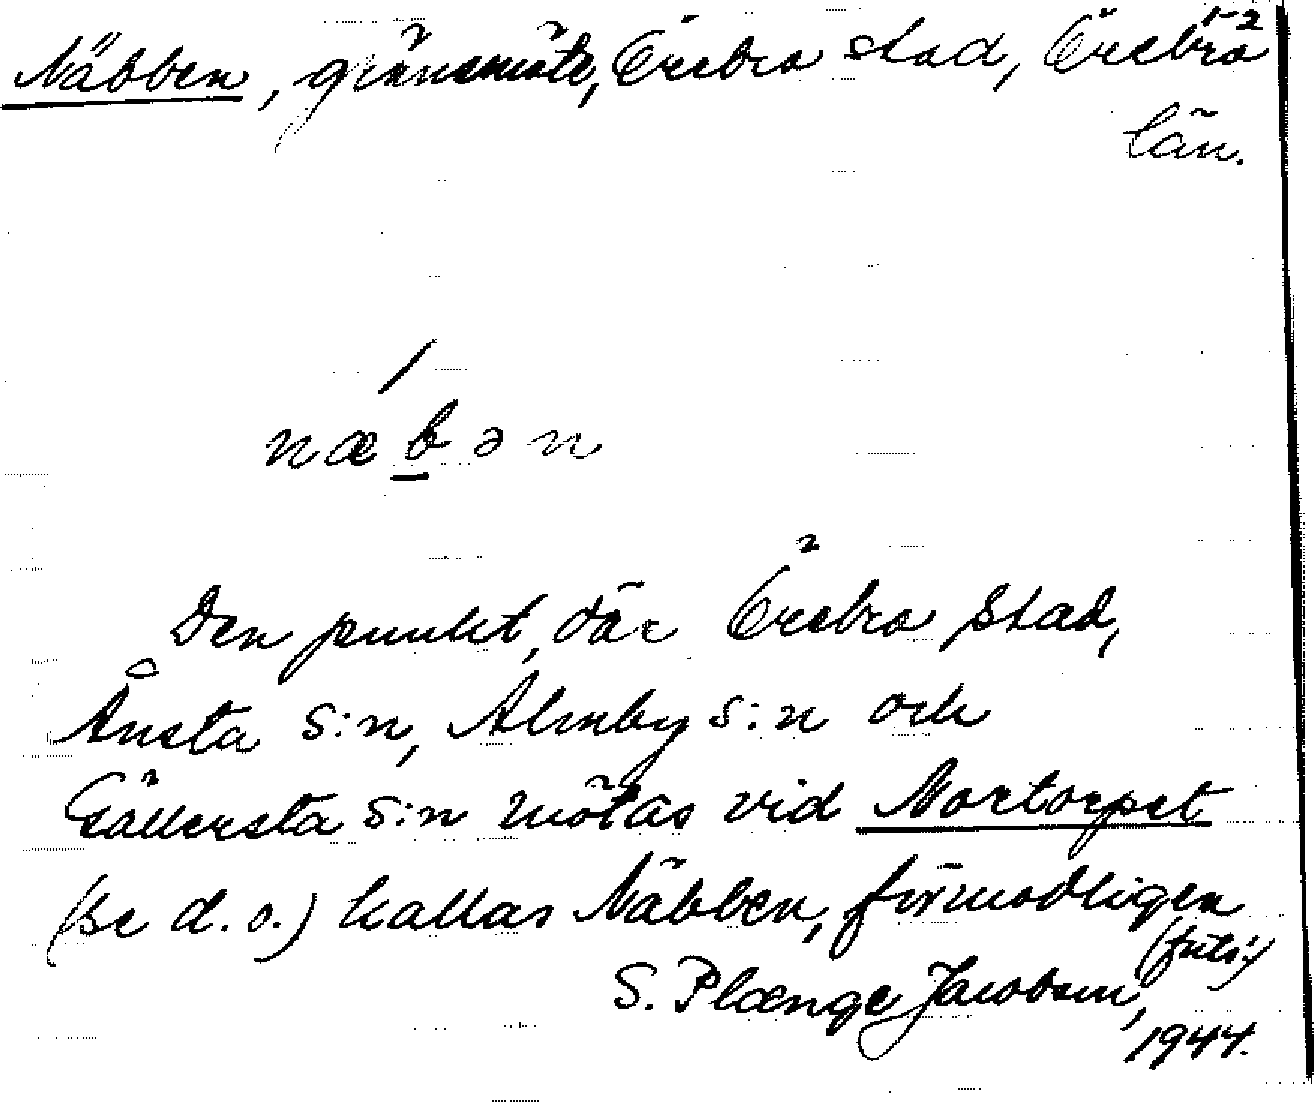 Näbben, gränsmöte, Örebro stad, Örebro 1-2
län.
næbən
Den punkt, där Örebro stad,
Ånsta s:n, Almby s:n och
Gällersta s:n mötas vid Nortorpet
(se d.o.) kallas Näbben, förmodligen
(forts.)
S. Plænge Jacobson,
1944.